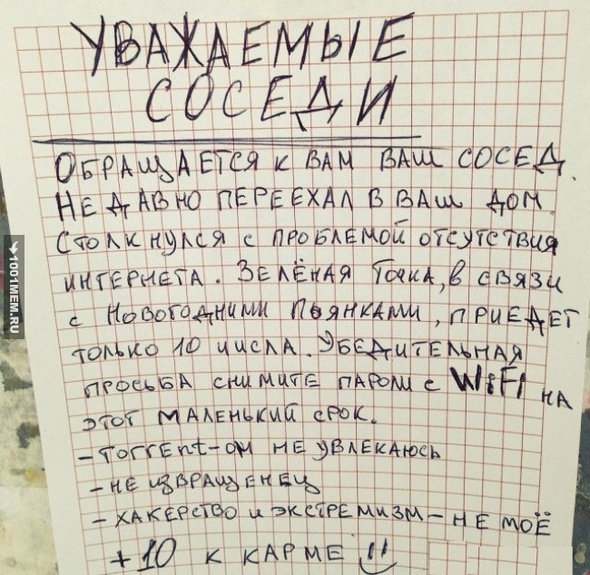 УВАЖАЕМЫЕ
СОСЕДИ
ОБРАЩАЕТСЯ К ВАМ ВАШ СОСЕД.
НЕДАВНО ПЕРЕЕХАЛ В ВАШ ДОМ.
СТОЛКНУЛСЯ С ПРОБЛЕМОЙ ОТСУТСТВИЯ
ИНТЕРНЕТА. ЗЕЛЁНАЯ ТОЧКА, В СВЯЗИ
С НОВОГОДНИМИ ПЬЯНКАМИ, ПРИЕДЕТ
ТОЛЬКО 10 ЧИСЛА. УБЕДИТЕЛЬНАЯ
ПРОСЬБА СНИМИТЕ ПАРОЛИ С WiFi НА
ЭТОТ МАЛЕНЬКИЙ СРОК.
- ТОrrEnt-ОМ НЕ УВЛЕКАЮСЬ
- НЕ ИЗВРАЩЕНЕЦ
- ХАКЕРСТВО И ЭКСТРЕМИЗМ - НЕ МОЁ
+10 К КАРМЕ
1001MEM.RU